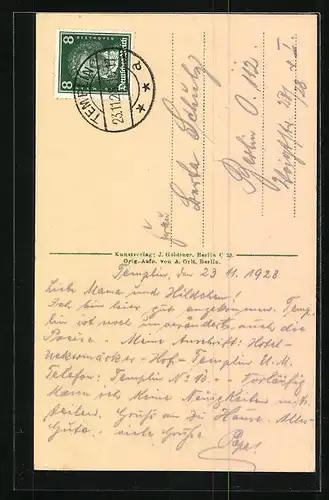 BEETHOVEN
8 8
Deutsches Reich
TEMPLIN
23.11.28
a
Frau
Schulz
Berlin O. 112.
Kunstverlag: J. Goldiner, Berlin C 25.
Orig.-Aufn. von A. Orth, Berlin.
Templin, den 23 11. 1928
Liebe Mama und Hildchen!
Ich bin hier gut angekommen. Temp-
lin ist noch unverändert, auch die
Preise. - Meine Anschrift: Hotel-
Uckermärker-Hof- Templin U.M.
Telefon: Templin No 10. - Vorläufig
kann ich keine Neuigkeiten mit-
teilen. Gruß an zu Hause. Alles
Gute. viele Grüße.
Papa!